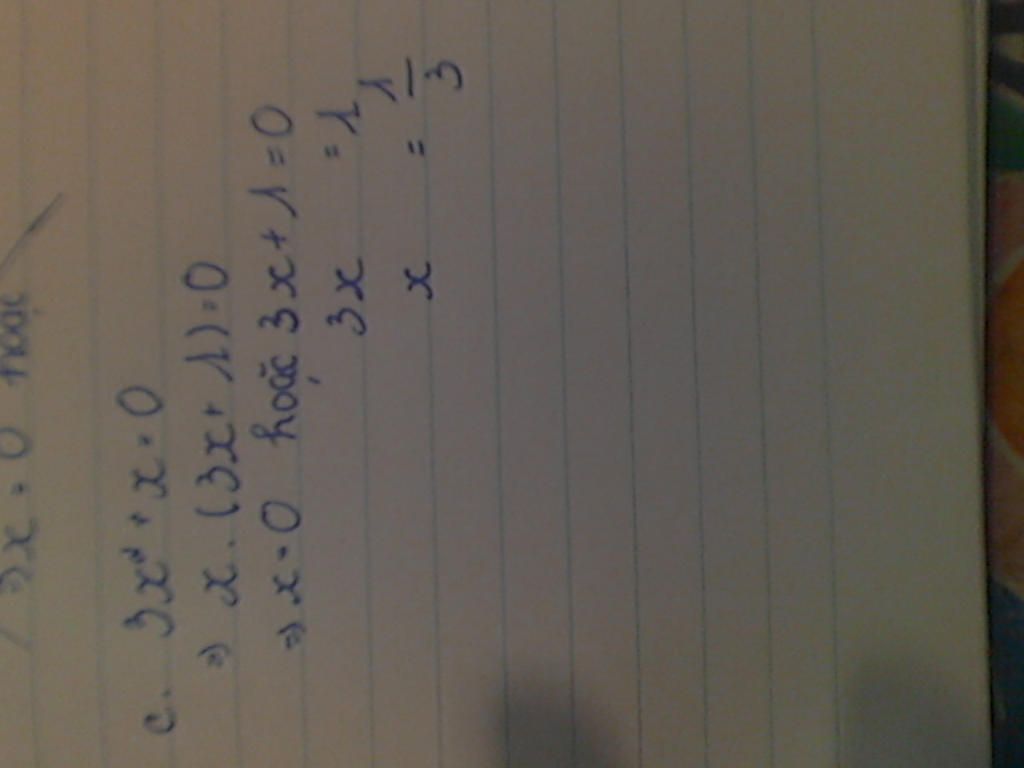 ⇒ x = 0 hoặc
c. 3x² + x = 0
⇒ x . (3x + 1) = 0
⇒ x = 0 hoặc 3x + 1 = 0
3x = 1
x = 1/3